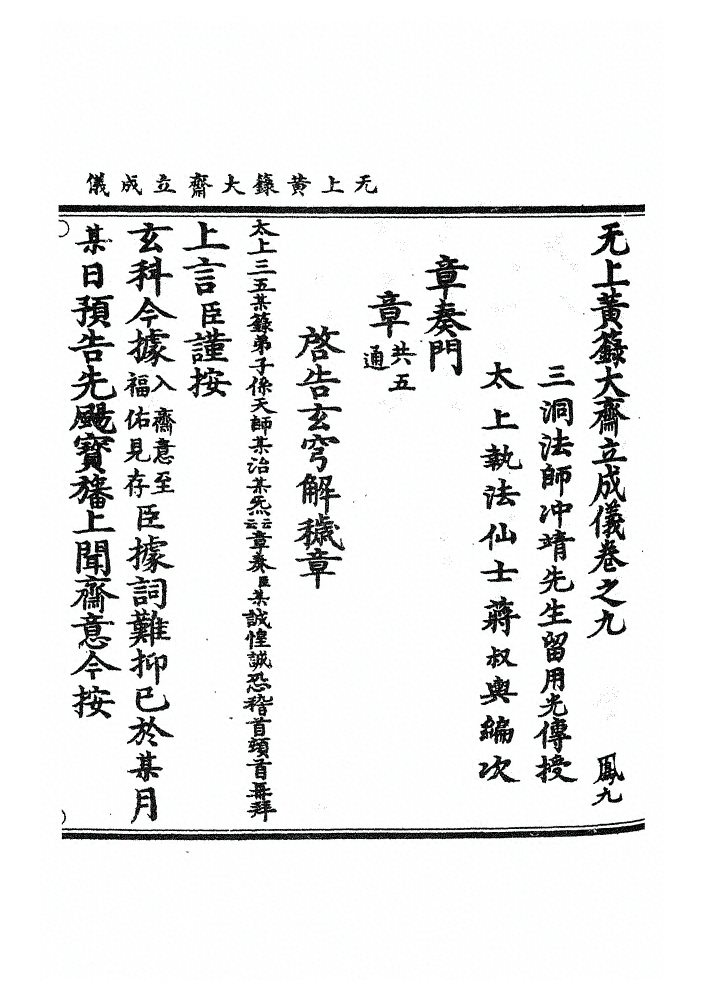 无上黃籙大齋立成儀
无上黃籙大齋立成儀卷之九 鳳九
三洞法師冲靖先生留用光傳授
太上執法仙士蔣叔輿編次
章奏門
章共五通
啓告玄穹解穢章
太上三五某籙弟子係天師某治某炁云云章奏臣某誠惶誠恐稽首頓首再拜
上言臣謹按
玄科今據入齋意至福佑見存臣據詞難抑已於某月
某日預告先颺寶旛上聞齋意今按